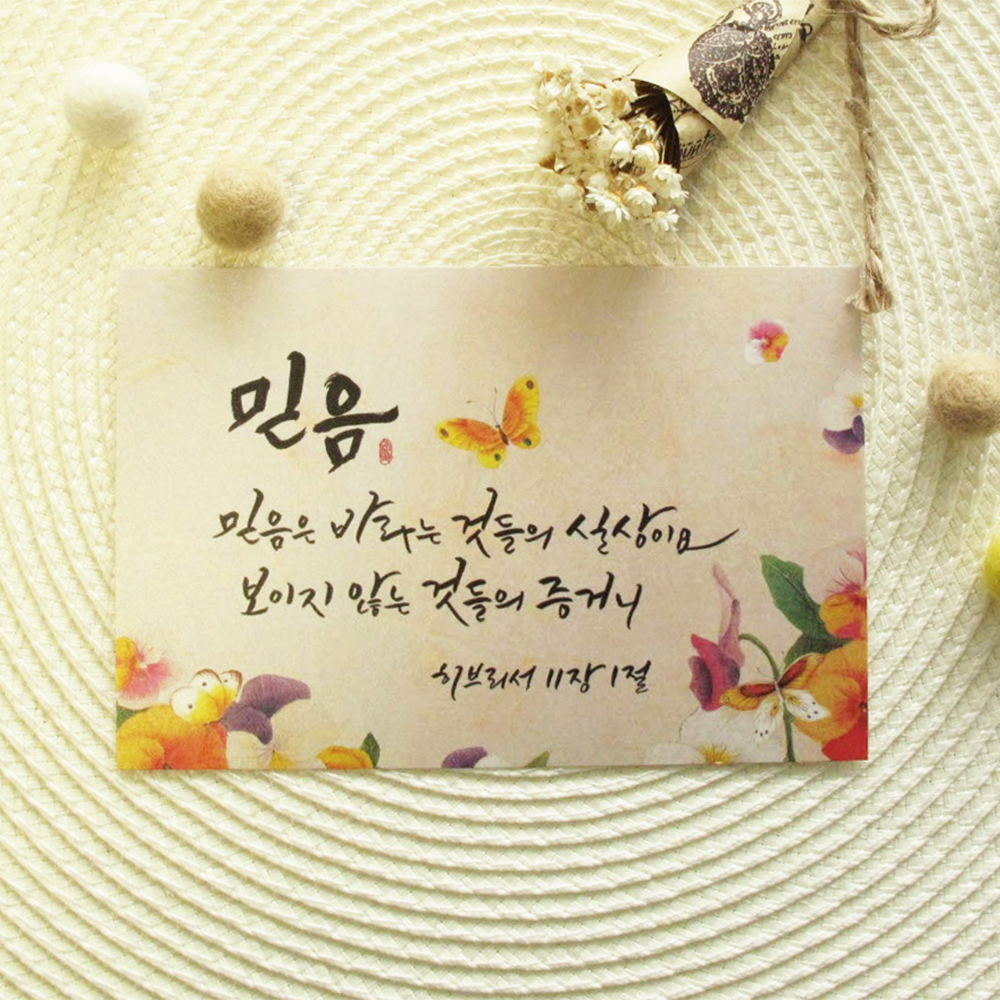 믿음
믿음은 바라는 것들의 실상이요
보이지 않는 것들의 증거니
히브리서 11장 1절